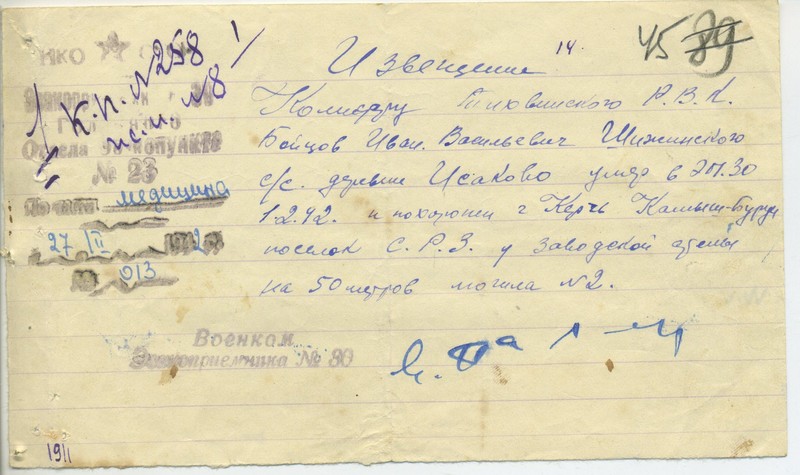 НКО
К.П. N 258
п.м. N 8
Отдела Эвакопункта
№ 23
По части медицина
27 III 1942 г.
№ 913
14.
45 89
Извещение
Комиссару Тихвинского Р.В.К.
Бойцов Иван. Васильевич Шижинского
с/с. деревни Исаково умер в 201.30
1.2.42. и похоронен г Керчь Камыш-Бурун
поселок С.Р.З. у заводской стены
на 50 метров могила N2.
Военком
Эвакоприемника № 80
1911